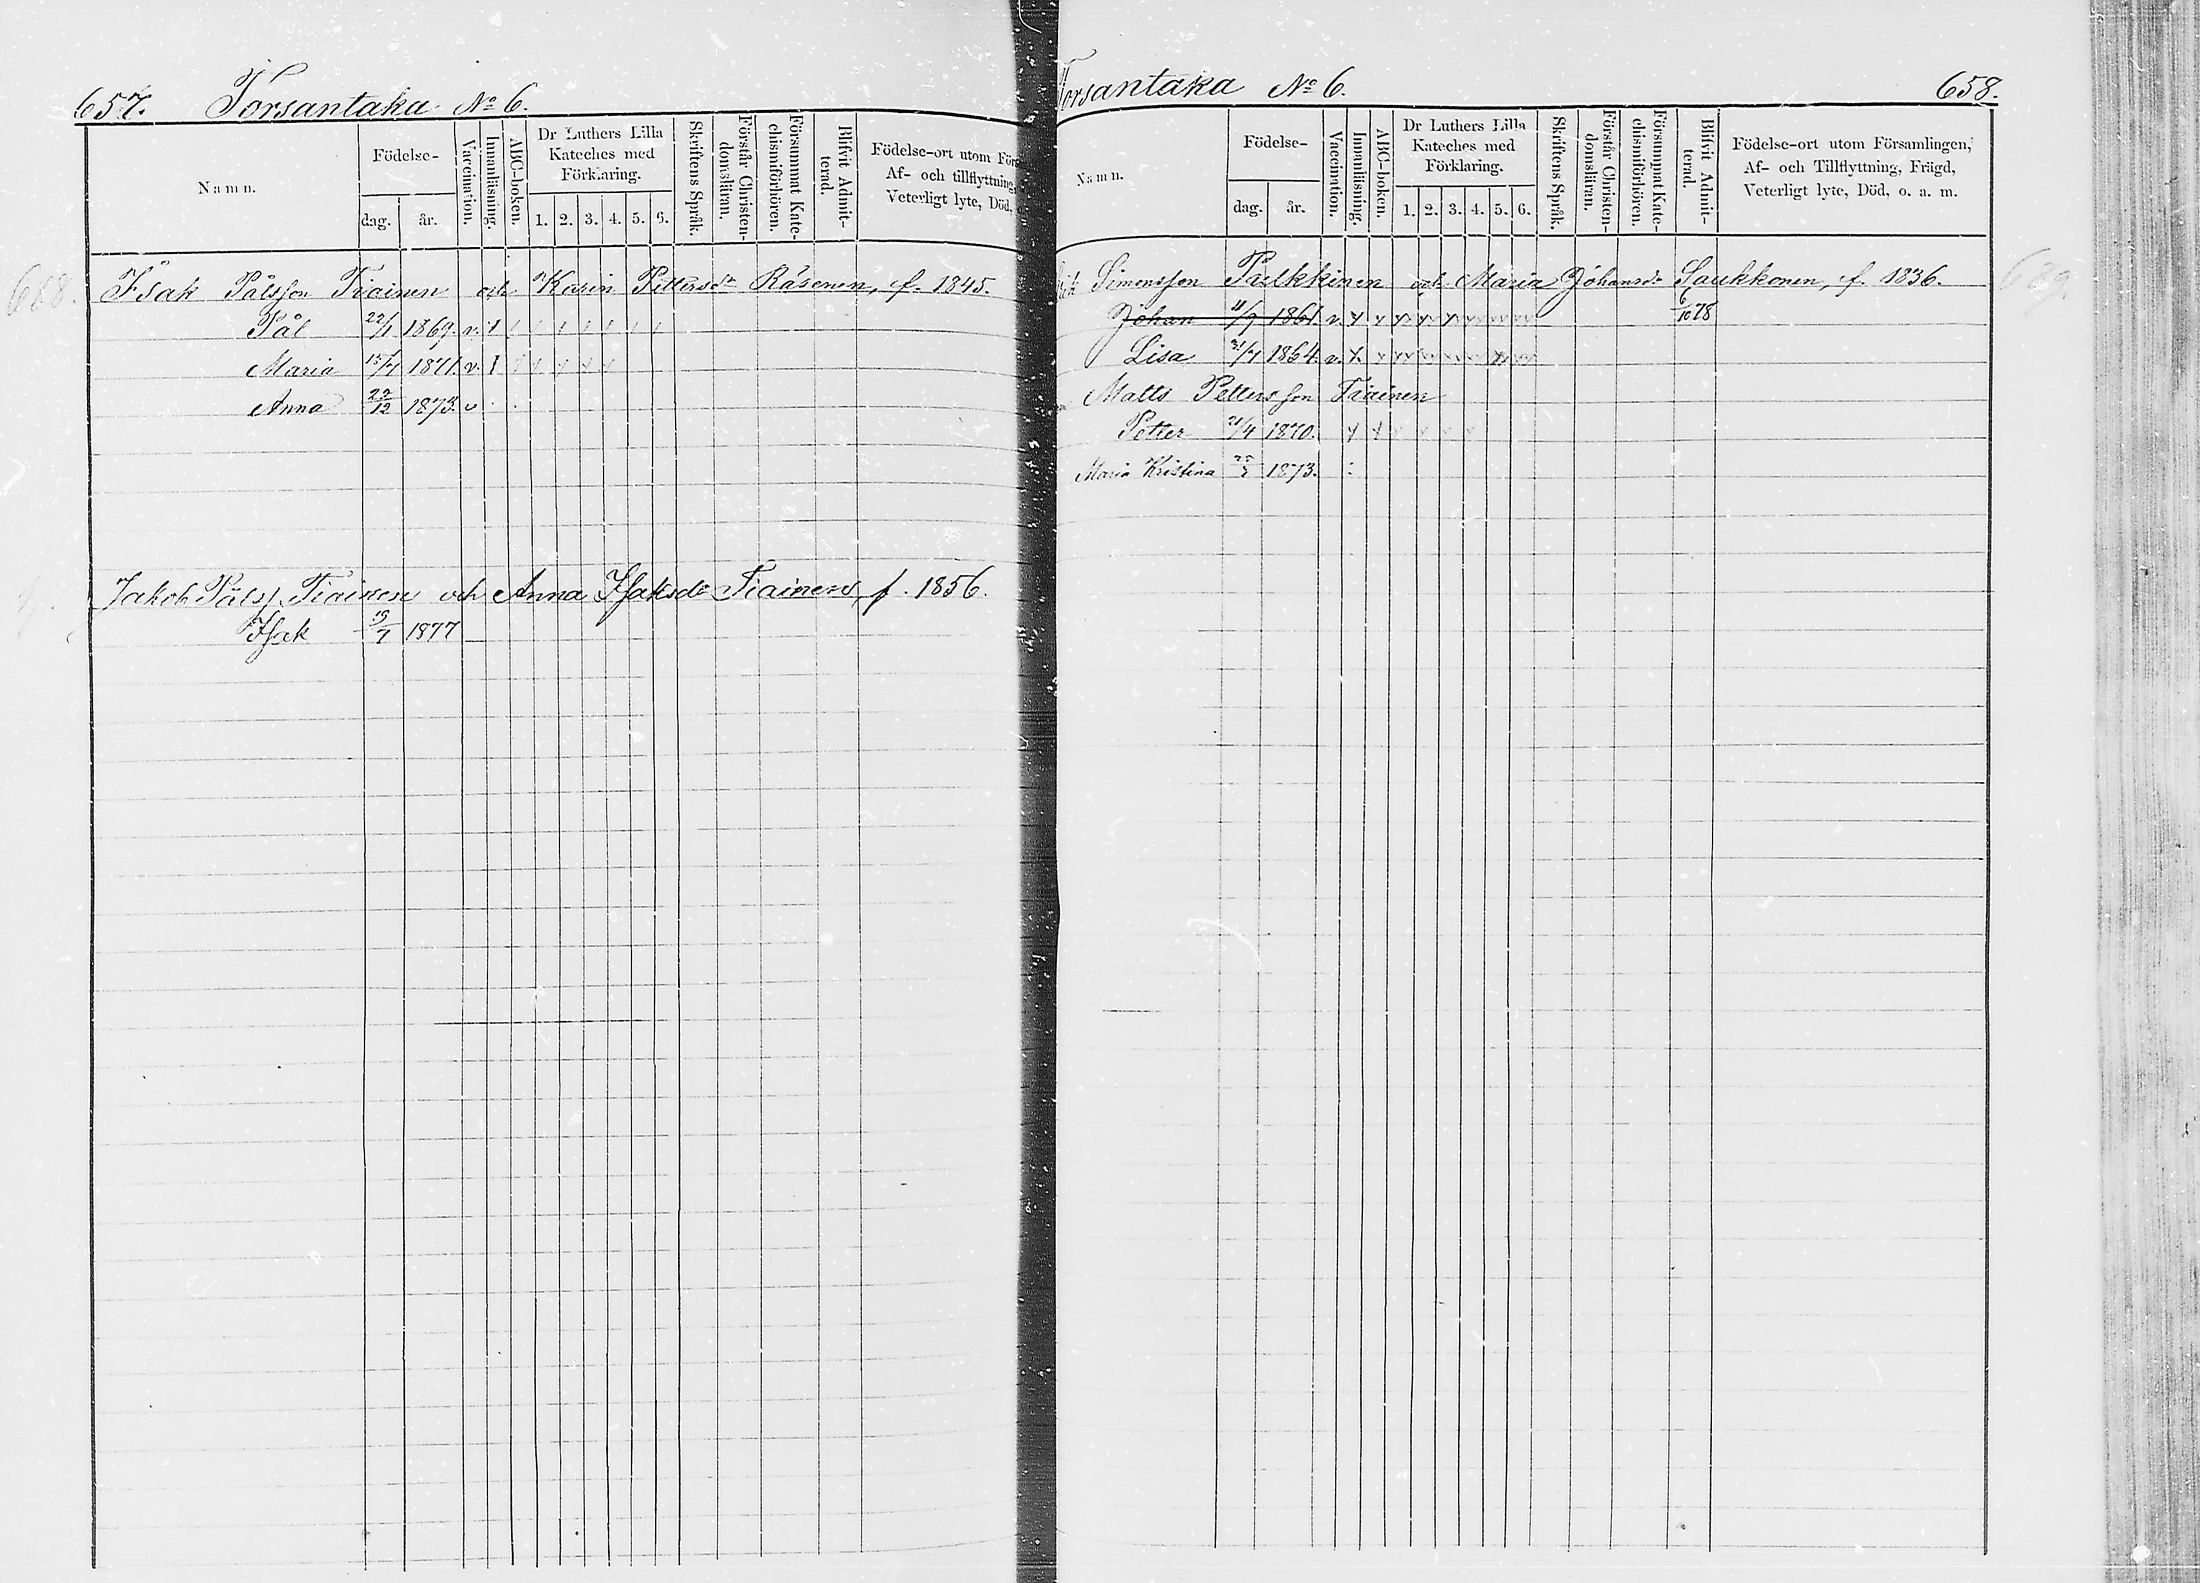 657. Torsantaka № 6.
Namn.
Födelse-
dag. år.
Vaccination.
Innanläsning.
ABC-boken.
Dr Luthers Lilla
Kateches med
Förklaring.
1. 2. 3. 4. 5. 6.
Skriftens Språk.
Förstår Christen-
domsläran.
Försummat Kate-
chismiförhören.
Blifvit Admit-
terad.
Födelse-ort utom För
Af- och tillflyttning,
Veterligt lyte, Död,
688.
Isak Pålsson Tiainen och Karin Pettersdr Räsenen, f. 1845.
Pål 22/1 1869. v.
Maria 15/4 1871. v.
Anna 22/12 1873. v
Jakob Pålss. Tiainen och Anna Isaksdr Tiainen, f. 1856.
Isak 15/7 1877
Torsantaka № 6. 658.
Namn.
Födelse-
dag. år.
Vaccination.
Innanläsning.
ABC-boken.
Dr Luthers Lilla
Kateches med
Förklaring.
1. 2. 3. 4. 5. 6.
Skriftens Språk.
Förstår Christen-
domsläran.
Försummat Kate-
chismiförhören.
Blifvit Admit-
terad.
Födelse-ort utom Församlingen,
Af- och Tillflyttning, Frägd,
Veterligt lyte, Död, o. a. m.
Simonsson Pulkkinen och Maria Johansdr Saukkonen, f. 1836.
Johan 1861. v. 6/10 78
Lisa 1864. v.
Matts Pettersson Tiainen
Petter 21/4 1870.
Maria Kristina 1873.